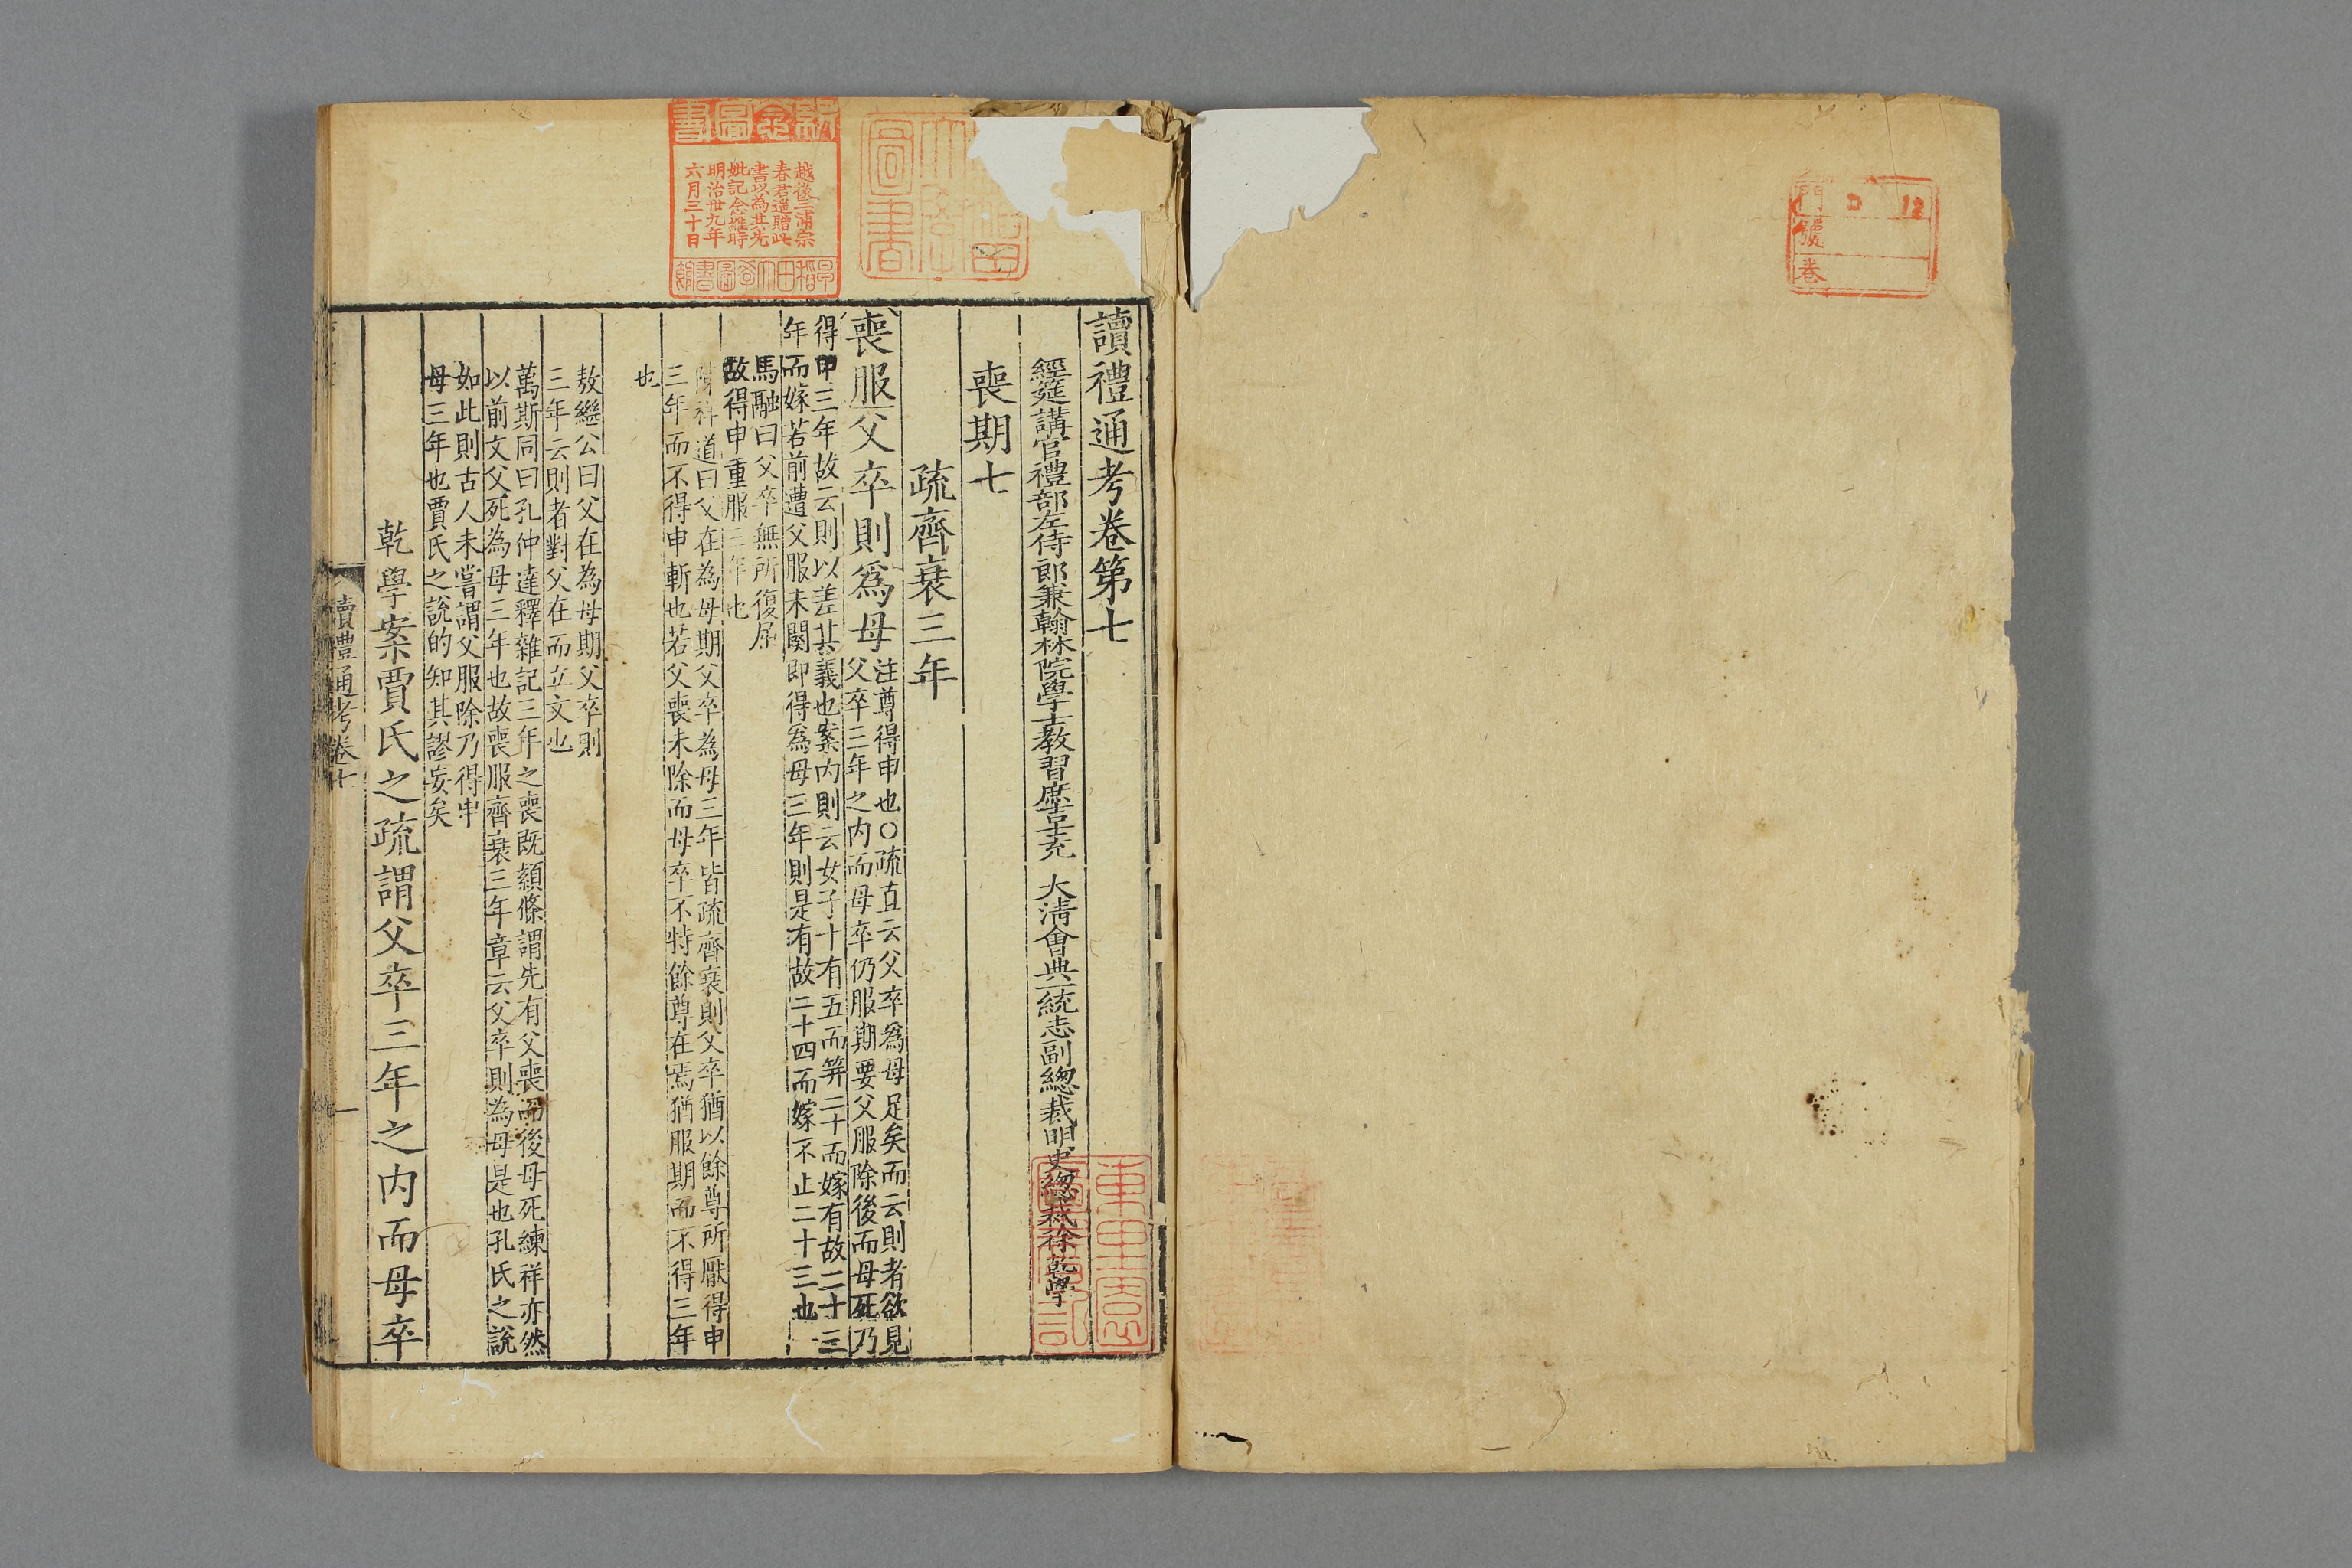 讀禮通考卷第七
經筵講官禮部左侍郎兼翰林院學士教習庶吉士充 大清會典一統志副總裁明史總裁徐乾學
喪期七
疏齊衰三年
喪服父卒則爲母
注尊得申也○疏直云父卒爲母足矣而云則者欲見
父卒三年之内而母卒仍服期要父服除後而母死乃
得申三年故云則以差其義也案内則云女子十有五而笄二十而嫁有故二十三
年而嫁若前遭父服未闋即得爲母三年則是有故二十四而嫁不止二十三也
馬融曰父卒無所復屈
故得申重服三年也
陳祥道曰父在為母期父卒為母三年皆疏齊衰則父卒猶以餘尊所厭得申
三年而不得申斬也若父喪未除而母卒不特餘尊在焉猶服期而不得三年
也
敖繼公曰父在為母期父卒則
三年云則者對父在而立文也
萬斯同曰孔仲達釋雜記三年之喪既顈條謂先有父喪而後母死練祥亦然
以前文父死為母三年也故喪服齊衰三年章云父卒則為母是也孔氏之說
如此則古人未嘗謂父服除乃得申
母三年也賈氏之說的知其謬妄矣
乾學案賈氏之疏謂父卒三年之内而母卒
讀禮通考卷七
一
越後三浦宗
春君遥贈此
書以為其先
妣記念維時
明治卅九年
六月三十日
早稻田大學圖書館
門 號 卷
12